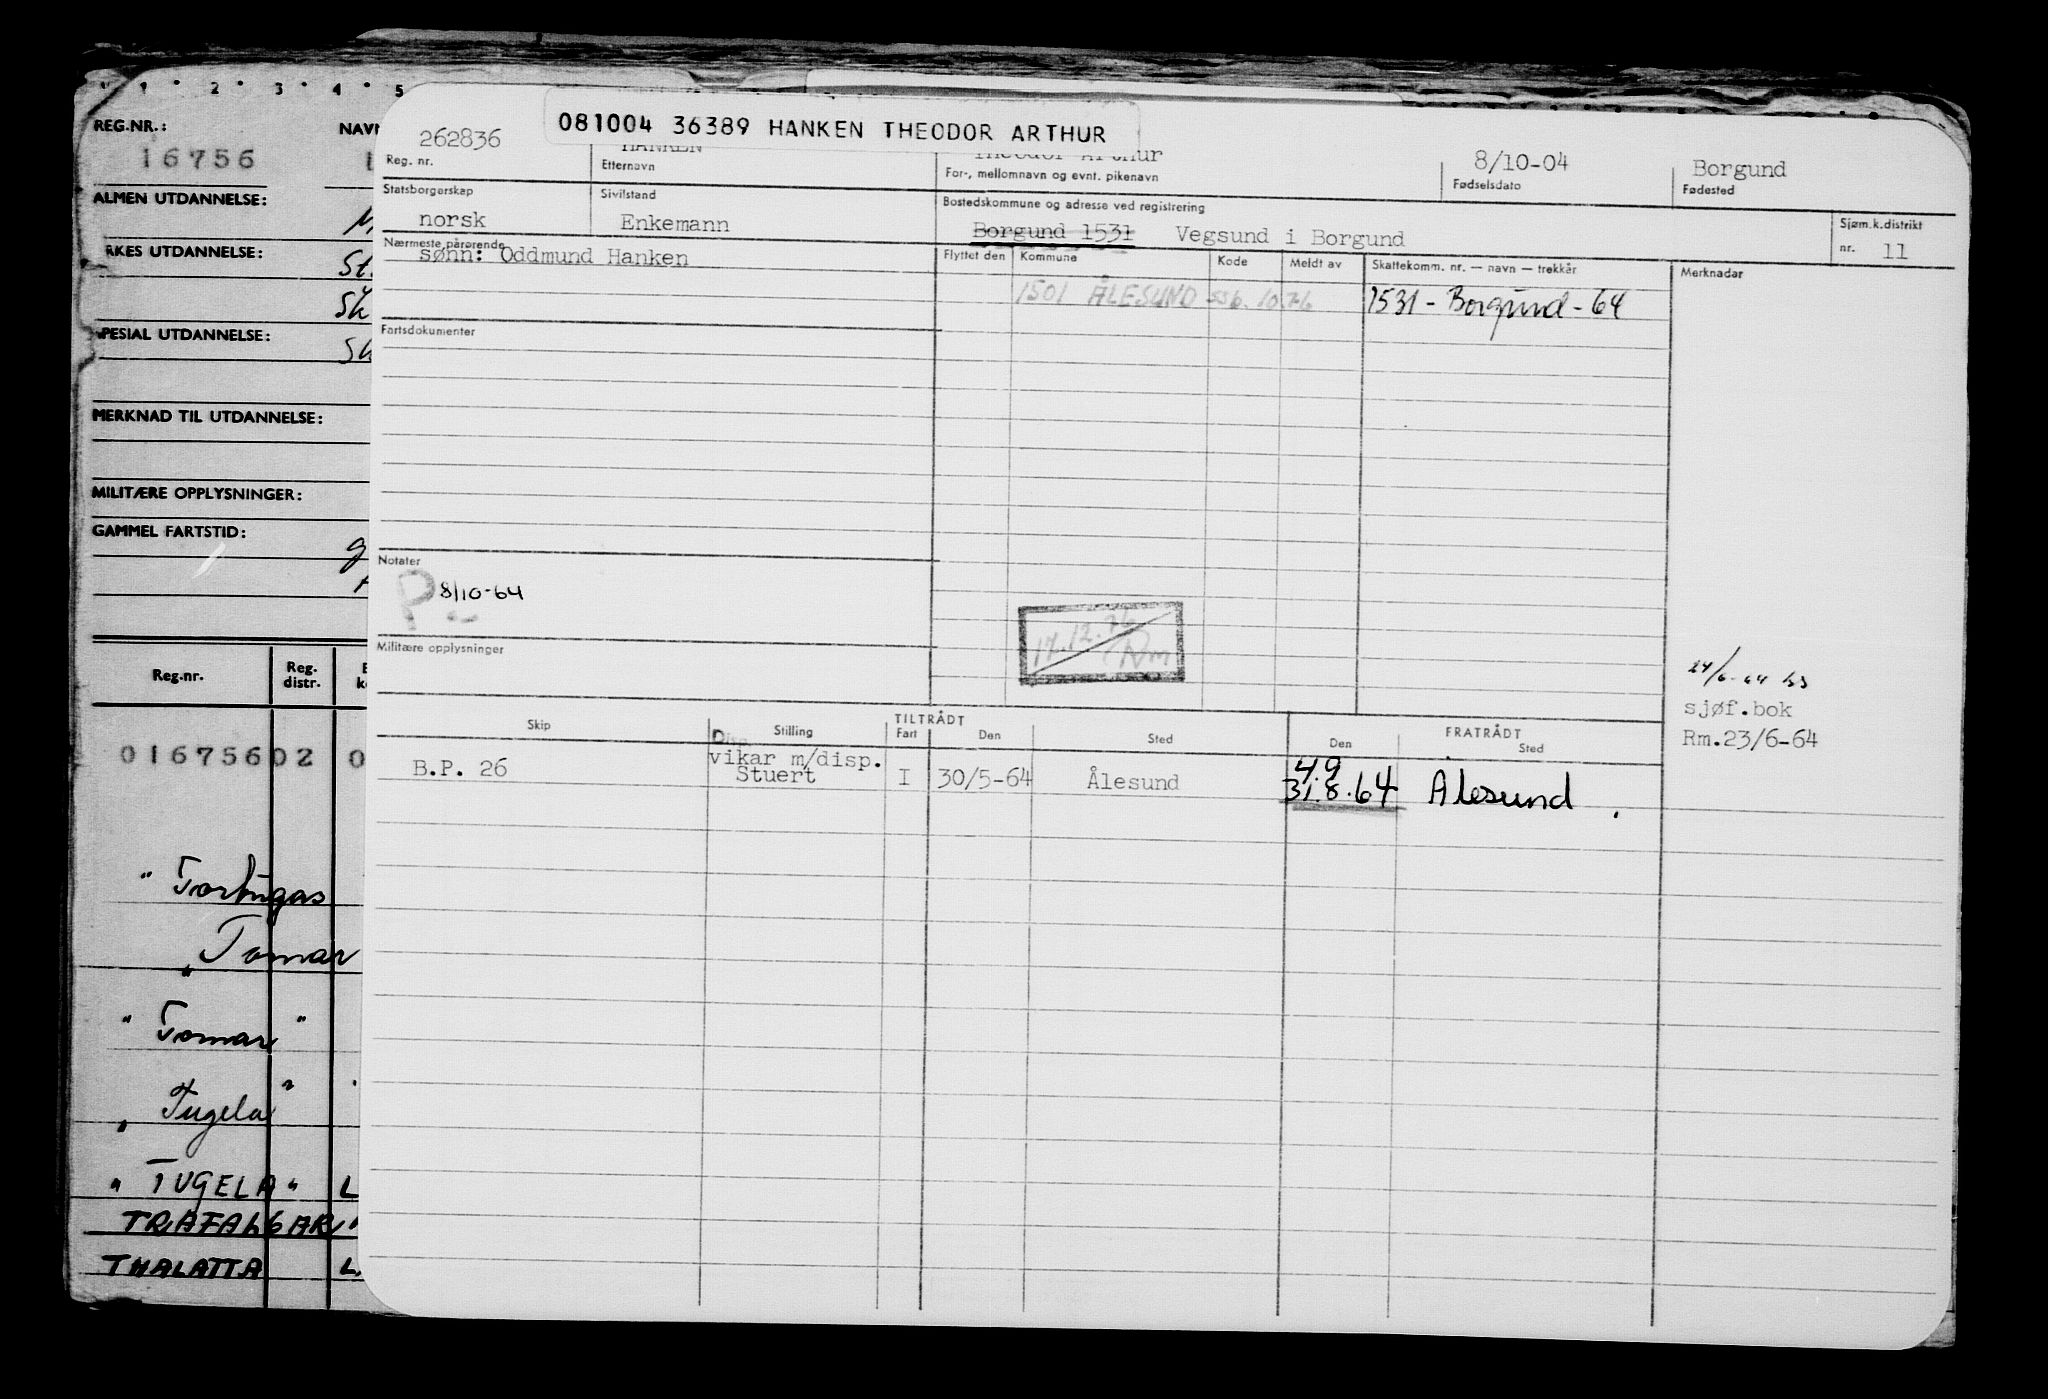 1 2 3 4 5
REG.NR.: NAVN
16756
ALMEN UTDANNELSE:
YRKES UTDANNELSE:
SPESIAL UTDANNELSE:
MERKNAD TIL UTDANNELSE:
MILITÆRE OPPLYSNINGER:
GAMMEL FARTSTID:
Reg.nr. Reg. distr.
01675602 0
" Tortugas
" Tomar
" Tomar "
" Tugela "
" TUGELA " L
TRAFALGAR
THALATTA L.
081004 36389 HANKEN THEODOR ARTHUR
262836 HANKEN Theodor Arthur 8/10-04 Borgund
Reg. nr. Etternavn For-, mellomnavn og evnt. pikenavn Fødselsdato Fødested
Statsborgerskap Sivilstand Bostedskommune og adresse ved registrering Sjøm.k.distrikt
norsk Enkemann Borgund 1531 Vegsund i Borgund nr. 11
Nærmeste pårørende Flyttet den Kommune Kode Meldt av Skattekomm. nr. — navn — trekkår Merknader
sønn: Oddmund Hanken
1501 ÅLESUND ssb. 10.76 1531 - Borgund - 64
Fartsdokumenter
Notater
P 8/10-64
17.12.76
Militære opplysninger
24/6-64
sjøf.bok
Rm.23/6-64
Skip Stilling TILTRÅDT FRATRÅDT
Fart Den Sted Den Sted
vikar m/disp. 4.9
B.P. 26 Stuert I 30/5-64 Ålesund 31.8.64 Ålesund.